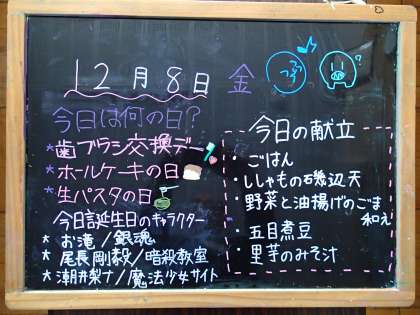 12月8日 金
つづつづ
今日は何の日?
*歯ブラシ交換デー
*ホールケーキの日
*生パスタの日
今日誕生日のキャラクター
* お滝/銀魂
* 尾長剛毅/暗殺教室
* 潮井梨ナ/魔法少女サイト
今日の献立
・ごはん
・ししゃもの磯辺天
・野菜と油揚げのごま
和え
・五目煮豆
・里芋のみそ汁